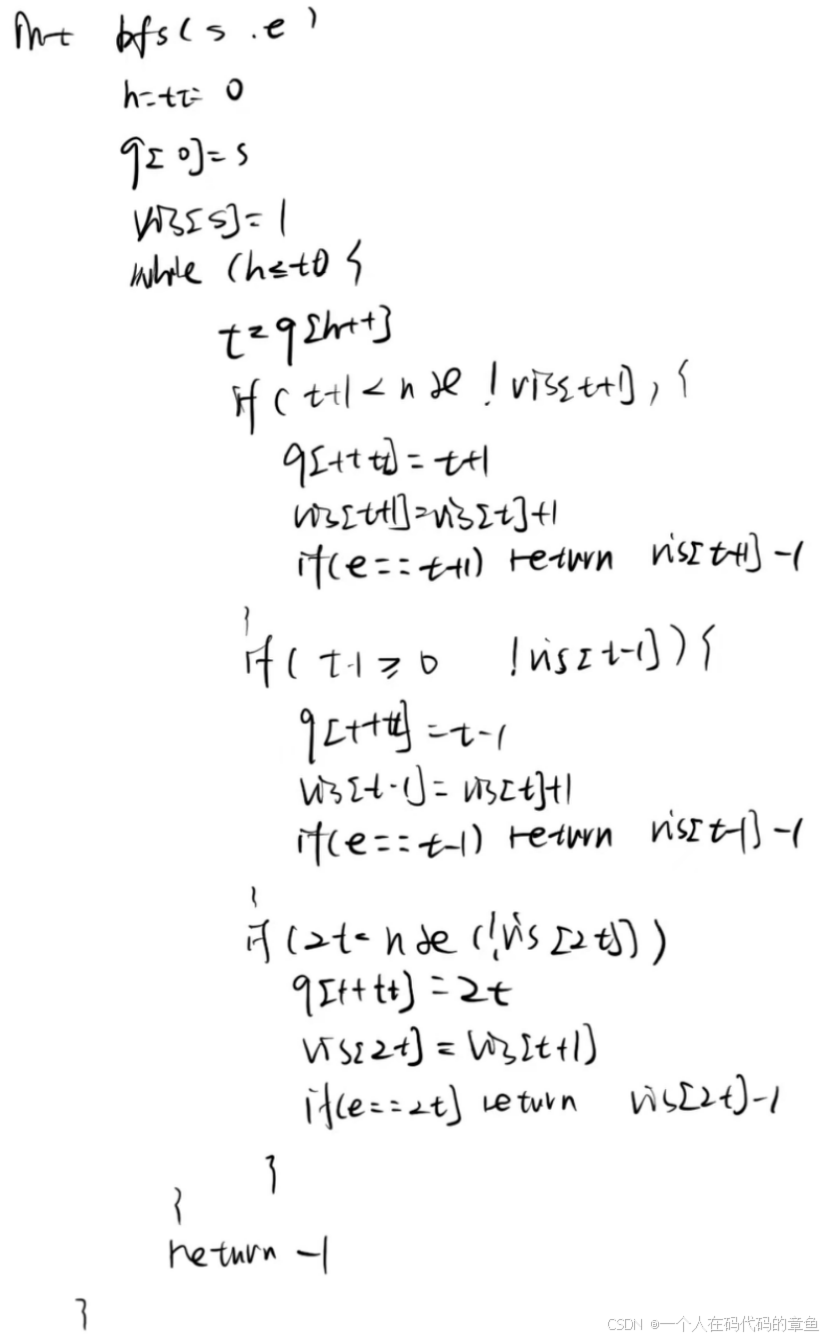 int bfs(s.e)
h=tt=0
q[0]=s
vis[s]=1
while (h≤tt){
t=q[h++]
if(t+1<n && !vis[t+1]){
q[++tt]=t+1
vis[t+1]=vis[t]+1
if(e==t+1) return vis[t+1]-1
}
if(t-1≥0 !vis[t-1]){
q[++tt]=t-1
vis[t-1]=vis[t]+1
if(e==t-1) return vis[t-1]-1
}
if(2t<n && (!vis[2t]))
q[++tt]=2t
vis[2t]=vis[t+1]
if(e==2t] return vis[2t]-1
}
}
return -1
}
CSDN @一个人在码代码的章鱼